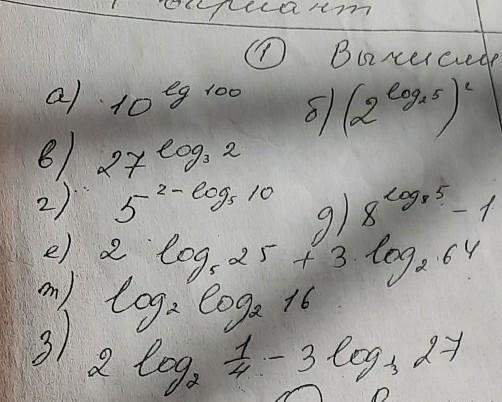 вариант
① Вычисли
а) 10^{lg 100} б) (2^{log₂5})²
в) 27^{log₃ 2}
г) 5^{2-log₅10} д) 8^{log₈5} - 1
е) 2 log₅ 25 + 3 · log₂ 64
ж) log₂ log₂ 16
з) 2 log₂ 1/4 - 3 log₃ 27